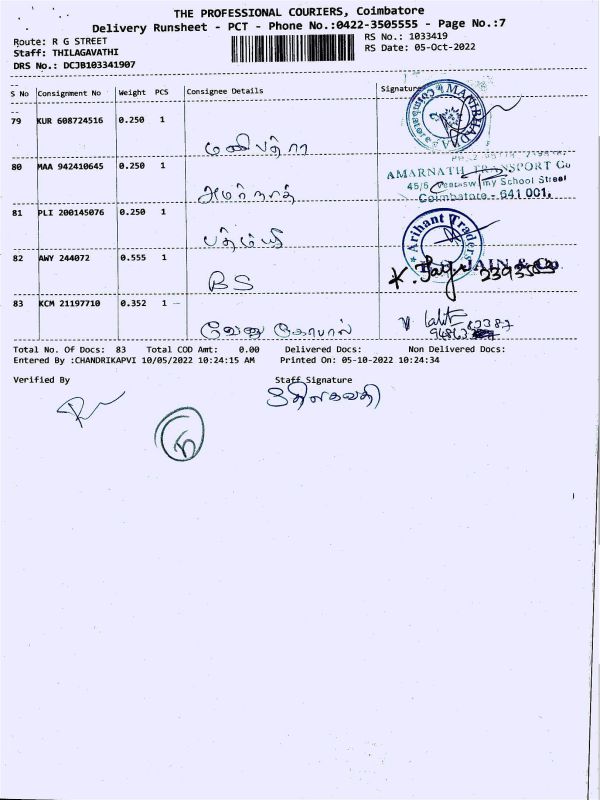 THE PROFESSIONAL COURIERS, Coimbatore
Delivery Runsheet - PCT - Phone No.:0422-3505555 - Page No.:7
Route: R G STREET
RS No.: 1033419
Staff: THILAGAVATHI
RS Date: 05-Oct-2022
DRS No.: DCJB103341907
S No Consignment No Weight PCS Consignee Details Signature
79 KUR 608724516 0.250 1
மணிபத்ரா
80 MAA 942410645 0.250 1
AMARNATH TRANSPORT Co
45/5, School Street
Coimbatore - 641 001.
அமர்நாத்
81 PLI 200145076 0.250 1
Arihant Traders
82 AWY 244072 0.555 1
JAIN & Co.
BS
83 KCM 21197710 0.352 1
வேணு கோபால்
Total No. Of Docs: 83 Total COD Amt: 0.00 Delivered Docs: Non Delivered Docs:
Entered By :CHANDRIKAPVI 10/05/2022 10:24:15 AM Printed On: 05-10-2022 10:24:34
Verified By Staff Signature
திலகவதி